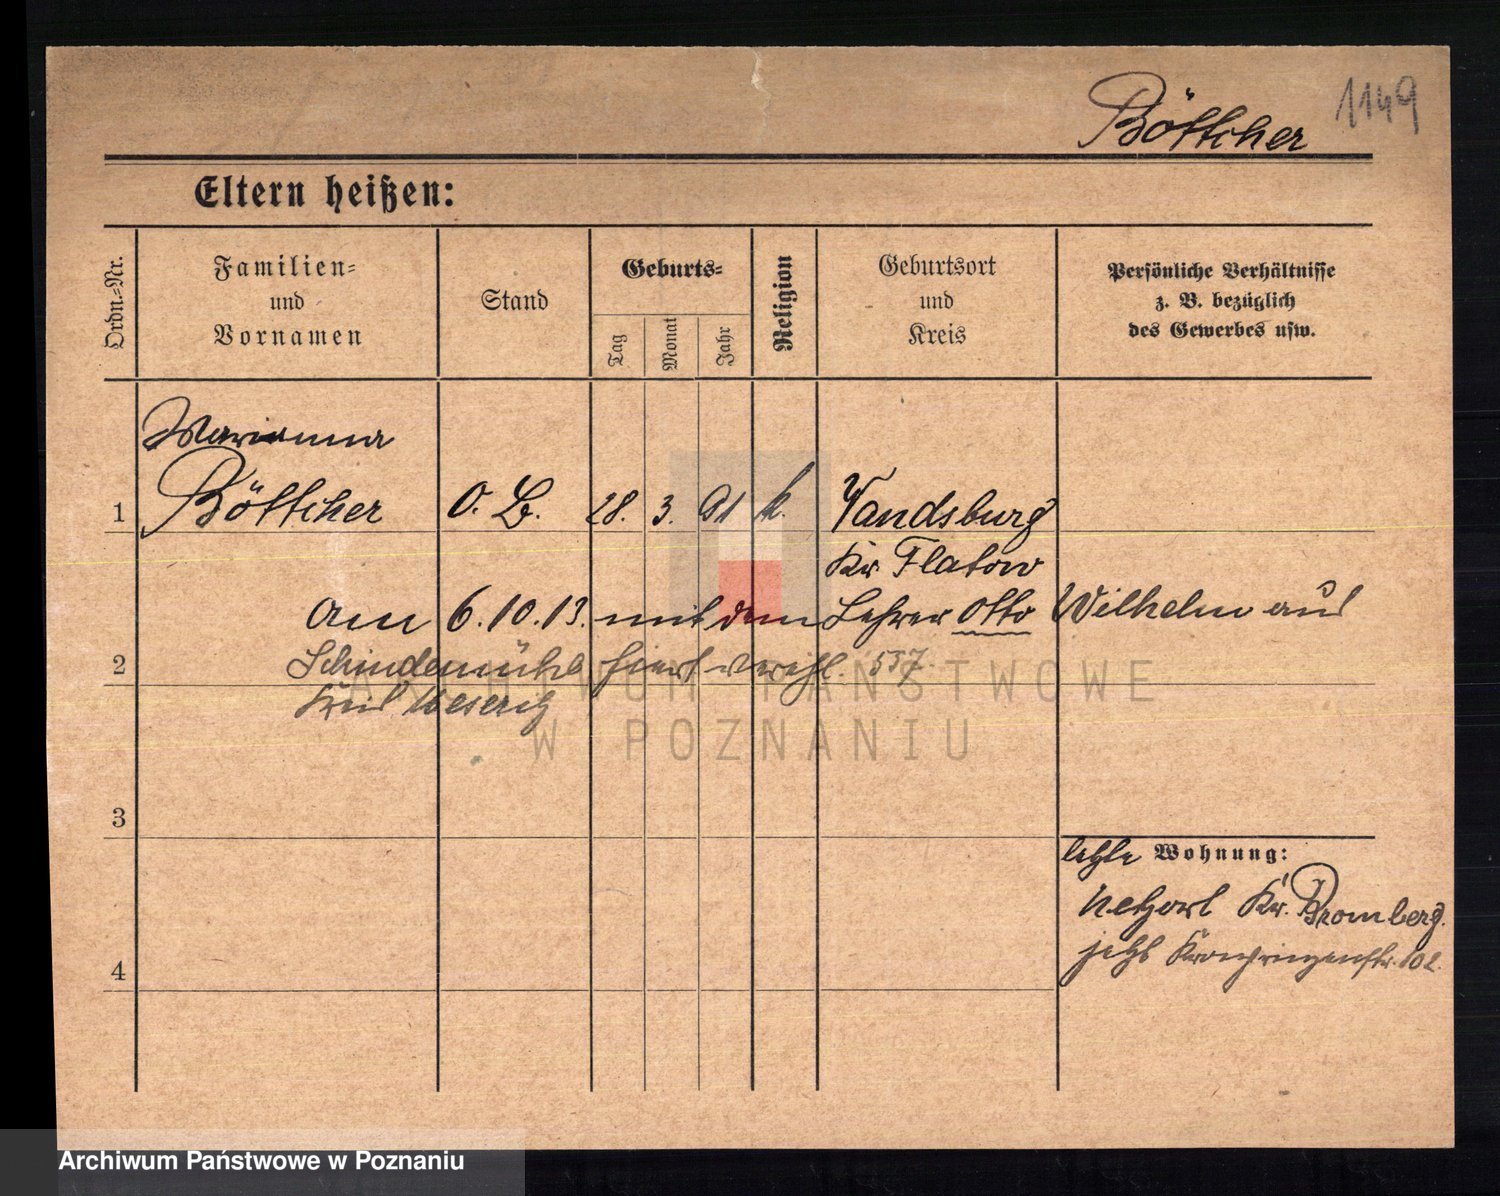 Böttcher 1149
Eltern heißen:
Ordn.-Nr.
Familien-
und
Vornamen
Stand
Geburts-
Tag
Monat
Jahr
Religion
Geburtsort
und
Kreis
Persönliche Verhältnisse
z. B. bezüglich
des Gewerbes usw.
Marianna
1 Böttcher O. B. 28. 3. 91 k. Vandsburg
Kr. Flatow
am 6.10.13. mit dem Lehrer Otto Wilhelm aus
2 Schindemühl hier verehl. 537.
Kreis Meseritz
3
letzte Wohnung:
Netzort Kr. Bromberg.
jetzt Kronprinzenstr. 102.
4
ARCHIWUM PAŃSTWOWE
W POZNANIU
Archiwum Państwowe w Poznaniu